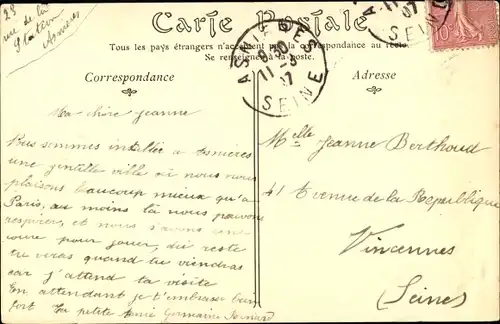 28
rue de la
Station
Asnières
Carte Postale
Tous les pays étrangers n'acceptent pas la correspondance au recto.
Se renseigner à la poste.
Correspondance
Adresse
ASNIÈRES
9-30
11-
07
SEINE
A
11-
07
SEINE
10
Ma chère Jeanne
Nous sommes intallée a Asnières
une gentille ville où nous nous
plaisons beaucoup mieux qu'a
Paris, au moins là nous pouvons
respirer, et nous s'avons
pour jouer, du reste
tu viras quand tu viendras
car j'attend ta visite
En attendant je t'embrasse bien
fort Ta petite Amie Germaine
Melle Jeanne Berthoud
41 Avenue de la République
Vincennes
(Seine)